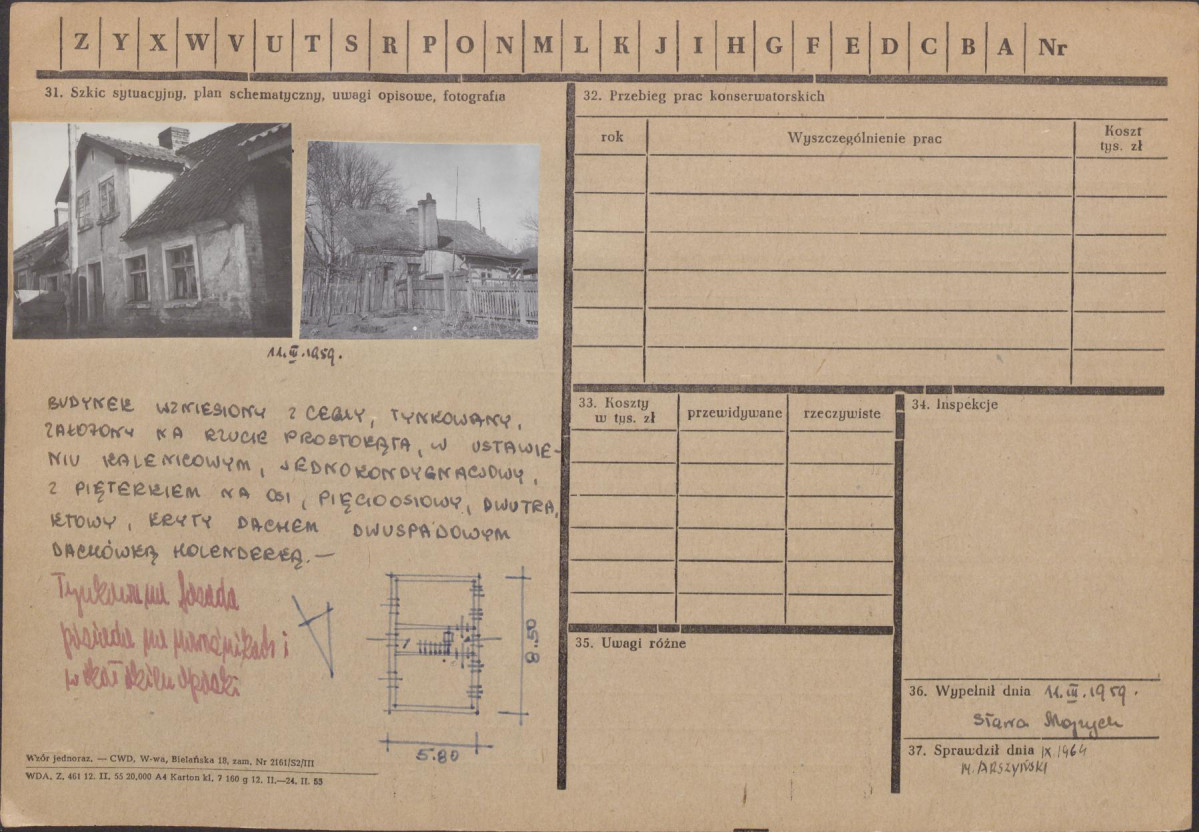 Z Y X W V U T S R P O N M L K J I H G F E D C B A Nr
31. Szkic sytuacyjny, plan schematyczny, uwagi opisowe, fotografia
11.III.1959.
BUDYNEK WZNIESIONY Z CEGŁY, TYNKOWANY,
ZAŁOŻONY NA RZUCIE PROSTOKĄTA, W USTAWIE-
NIU KALENICOWYM, JEDNOKONDYGNACJOWY,
Z PIĘTERKIEM NA OSI, PIĘCIOOSIOWY, DWUTRA,
KTOWY, KRYTY DACHEM DWUSPADOWYM
DACHÓWKĄ HOLENDERKĄ. —
Tynkowana fasada
posiada na narożnikach i
opaski
8.50
5.80
Wzór jednoraz. — CWD, W-wa, Bielańska 18, zam. Nr 2161/S2/III
WDA, Z, 461 12. II. 55 20,000 A4 Karton kl, 7 160 g 12. II.—24. II. 55
32. Przebieg prac konserwatorskich
rok
Wyszczególnienie prac
Koszt
tys. zł
33. Koszty
w tys. zł
przewidywane
rzeczywiste
34. Inspekcje
35. Uwagi różne
36. Wypełnił dnia 11.III.1959.
37. Sprawdził dnia IX 1964
M. ARSZYŃSKI